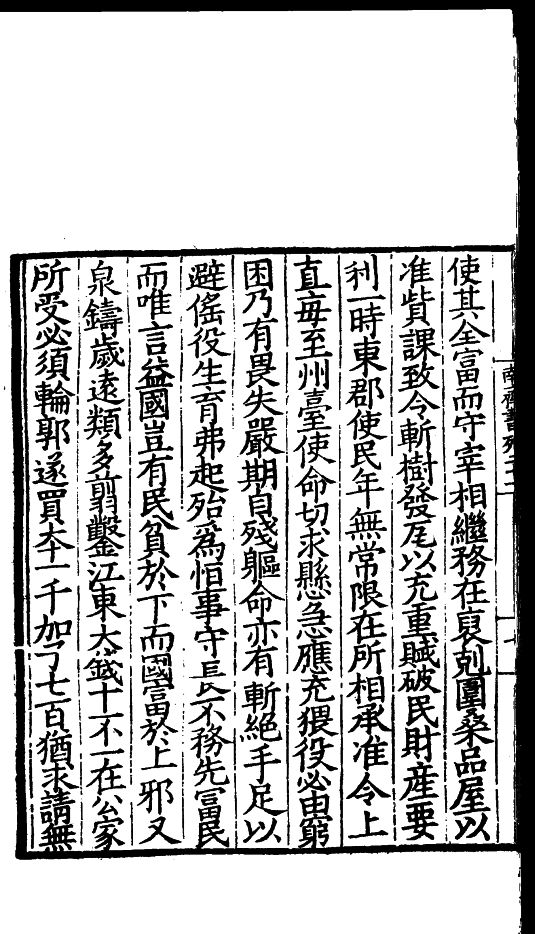 使其全富而守宰相繼務在裒剋圍桑品屋以
准貲課致令斬樹發瓦以充重賦破民財產要
利一時東郡使民年無常限在所相承准令上
直每至州臺使命切求懸急應充猥役必由窮
困乃有畏失嚴期自殘軀命亦有斬絕手足以
避傜役生育弗起殆爲恒事守長不務先富民
而唯言益國豈有民貧於下而國富於上邪又
泉鑄歲遠類多翦鑿江東大錢十不一在公家
所受必須輪郭遂買本一千加子七百猶求請無